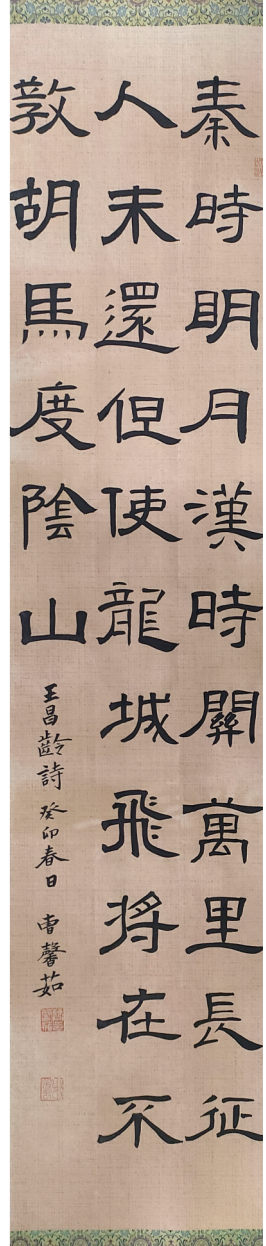 秦時明月漢時關萬里長征
人未還但使龍城飛將在不
教胡馬度陰山
王昌齡詩 癸卯春日 曹馨茹